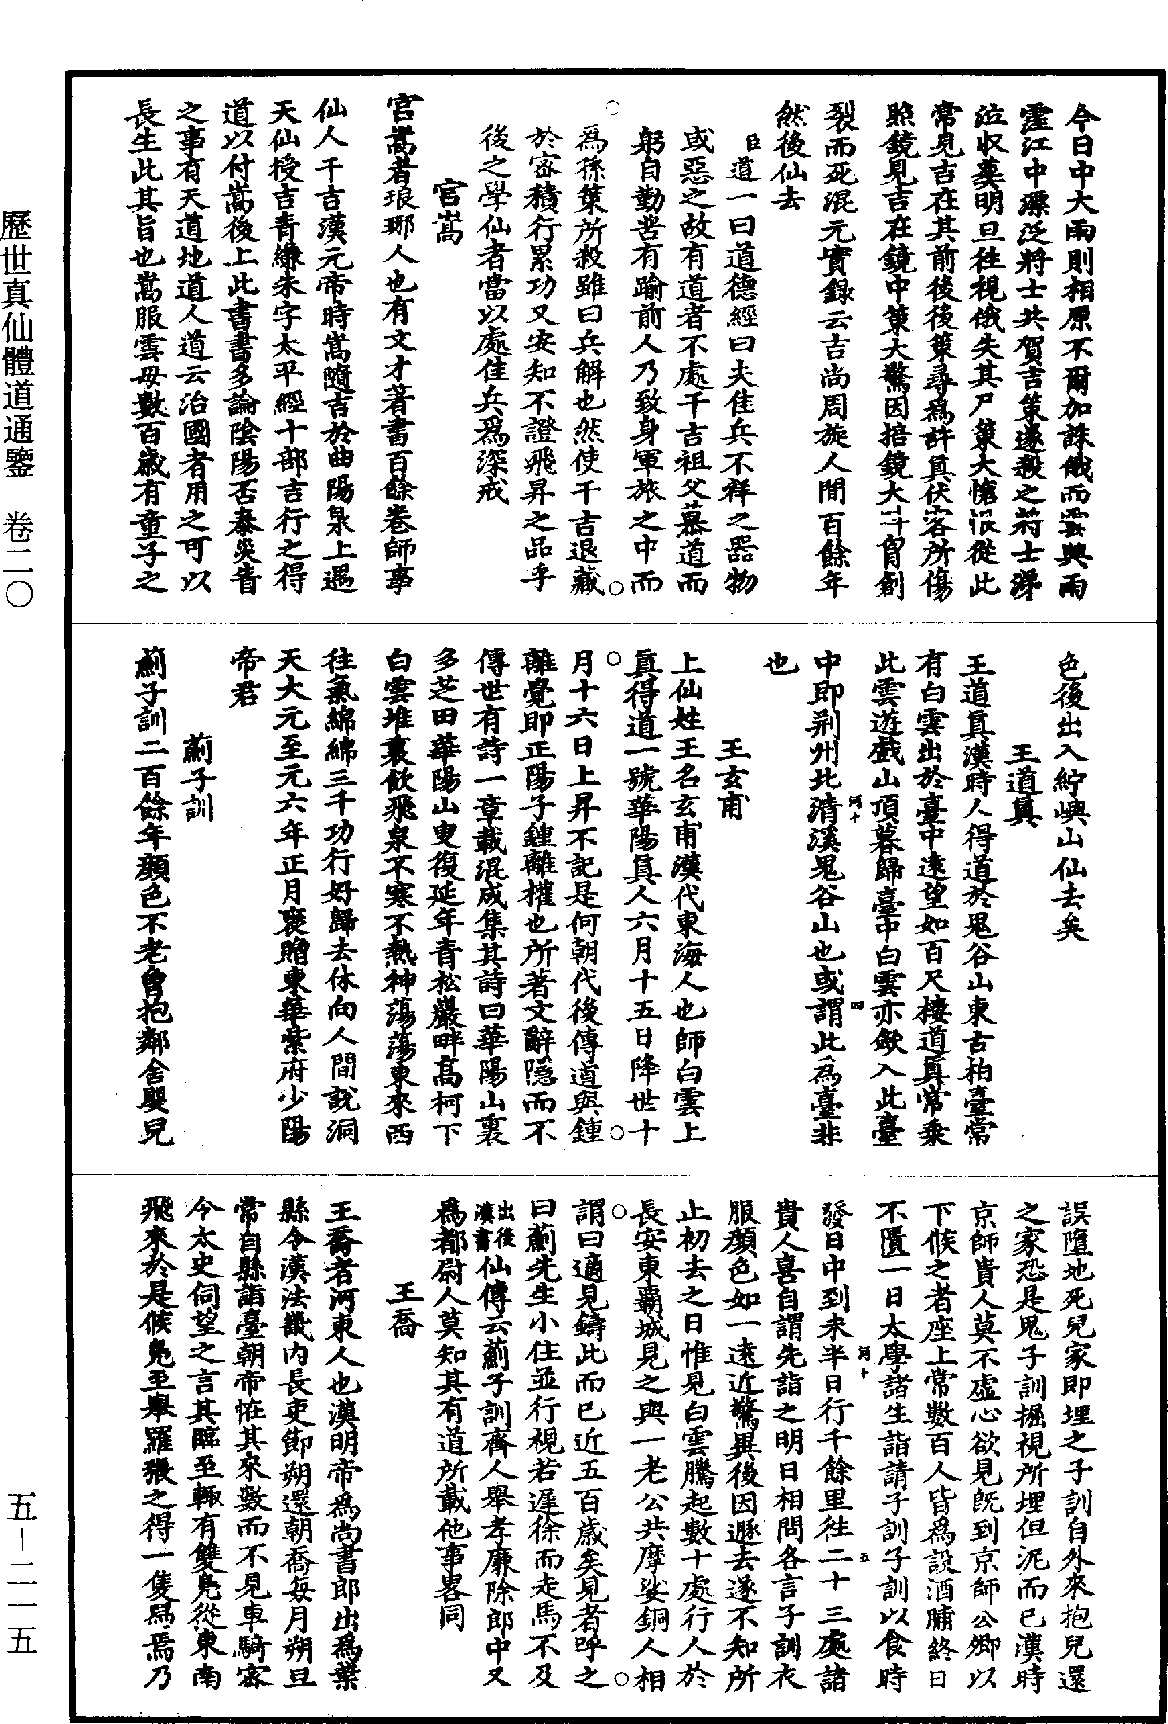 今日中大雨則相原不爾加誅俄而雲興雨
霔江中漂泛將士共賀吉策遂殺之將士涕
泣收葬明旦往視俄失其尸策大愴恨從此
常見吉在其前後後策尋為許貢伏客所傷
照鏡見吉在鏡中策大驚因掊鏡大叫胷創
裂而死混元實錄云吉尚周旋人間百餘年
然後仙去
臣道一曰道德經曰夫佳兵不祥之器物
或惡之故有道者不處干吉祖父慕道而
躬自勤苦有踰前人乃致身軍旅之中而
為孫策所殺雖曰兵解也然使干吉退藏
於密積行累功又安知不證飛昇之品乎
後之學仙者當以處佳兵為深戒
宮嵩
宮嵩者琅瑘人也有文才著書百餘卷師事
仙人干吉漢元帝時嵩隨吉於曲陽泉上遇
天仙授吉青縑朱字太平經十部吉行之得
道以付嵩後上此書書多論陰陽否泰災眚
之事有天道地道人道云治國者用之可以
長生此其旨也嵩服雲母數百歲有童子之
色後出入紵嶼山仙去矣
王道真
王道真漢時人得道於鬼谷山東古柏臺常
有白雲出於臺中遠望如百尺樓道真常乘
此雲遊戲山頂暮歸臺中白雲亦斂入此臺
中即荆州北清溪鬼谷山也或謂此為臺非
也
河十
四
王玄甫
上仙姓王名玄甫漢代東海人也師白雲上
真得道一號華陽真人六月十五日降世十
月十六日上昇不記是何朝代後傳道與鍾
離覺即正陽子鍾離權也所著文辭隱而不
傳世有詩一章載混成集其詩曰華陽山裏
多芝田華陽山叟復延年青松巖畔高柯下
白雲堆裏飲飛泉不寒不熱神蕩蕩東來西
往氣綿綿三千功行好歸去休向人間說洞
天大元至元六年正月褒贈東華紫府少陽
帝君
薊子訓
薊子訓二百餘年顏色不老曾抱鄰舍嬰兒
誤墮地死兒家即埋之子訓自外來抱兒還
之家恐是鬼子訓掘視所埋但泥而已漢時
京師貴人莫不虛心欲見既到京師公卿以
下候之者座上常數百人皆為設酒脯終日
不匱一日太學諸生詣請子訓子訓以食時
發日中到未半日行千餘里往二十三處諸
河十
五
貴人喜自謂先詣之明日相問各言子訓衣
服顏色如一遠近驚異後因遯去遂不知所
止初去之日惟見白雲騰起數十處行人於
長安東霸城見之與一老公共摩娑銅人相
謂曰適見鑄此而已近五百歲矣見者呼之
曰薊先生小住並行視若遲徐而走馬不及
出後漢書仙傳云薊子訓齊人舉孝廉除郎中又
為都尉人莫知其有道所載他事畧同
王喬
王喬者河東人也漢明帝為尚書郎出為葉
縣令漢法畿內長吏節朔還朝喬每月朔旦
常自縣詣臺朝帝怪其來數而不見車騎密
令太史伺望之言其臨至輒有雙鳧從東南
飛來於是候鳧至舉羅張之得一隻舄焉乃
歷世真仙體道通鑒 卷二〇
五－二一五